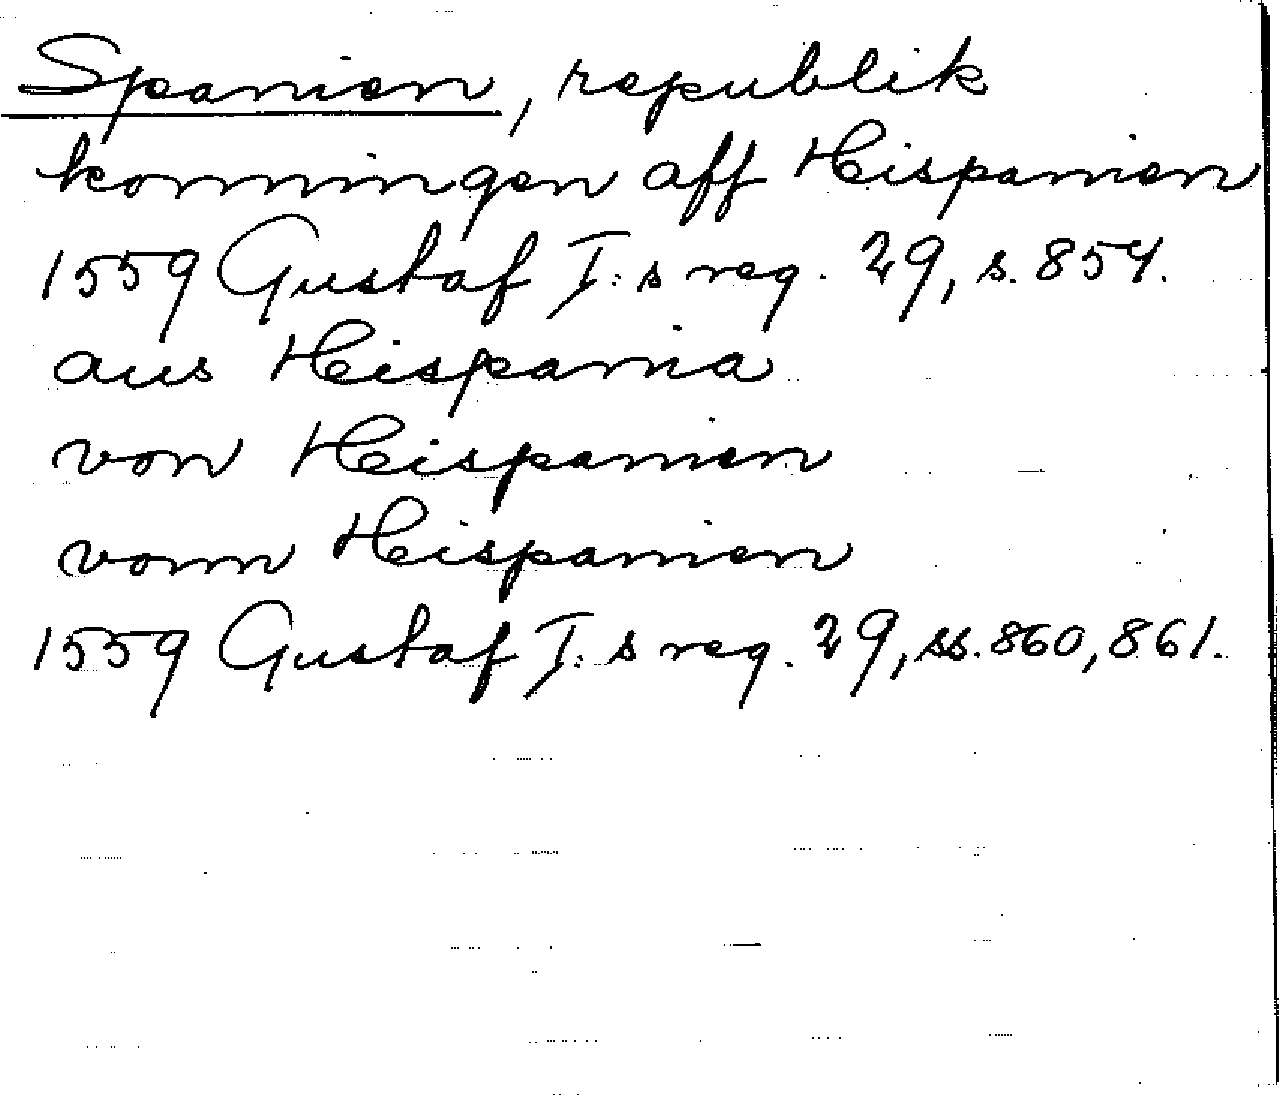 Spanien, republik
konningen aff Hispanien
1559 Gustaf I:s reg. 29, s. 854.
aus Hispania
von Hispanien
vonn Hispanien
1559 Gustaf I:s reg. 29, ss. 860, 861.